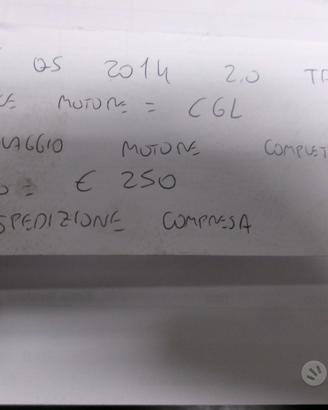 Q5 2014 2.0 TD
MOTORE = CGL
MOTORE COMPLET
= € 250
SPEDIZIONE COMPRESA